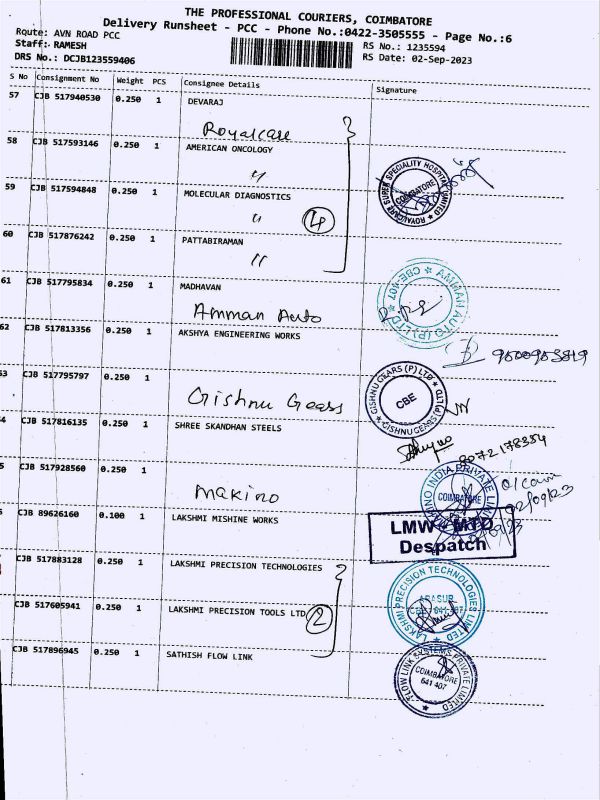 THE PROFESSIONAL COURIERS, COIMBATORE
Delivery Runsheet - PCC - Phone No.:0422-3505555 - Page No.:6
Route: AVN ROAD PCC
Staff: RAMESH
RS No.: 1235594
DRS No.: DCJB123559406
RS Date: 02-Sep-2023
S No Consignment No Weight PCS Consignee Details Signature
57 CJB 517940530 0.250 1 DEVARAJ
Royalcare
58 CJB 517593146 0.250 1 AMERICAN ONCOLOGY
"
ROYALCARE SUPER SPECIALITY HOSPITAL LIMITED
COIMBATORE
59 CJB 517594848 0.250 1 MOLECULAR DIAGNOSTICS
" 4
60 CJB 517876242 0.250 1 PATTABIRAMAN
"
AMMAN AUTO (P) LTD CBE-407
61 CJB 517795834 0.250 1 MADHAVAN
Amman Auto
62 CJB 517813356 0.250 1 AKSHYA ENGINEERING WORKS
3 CJB 517795797 0.250 1
Gishnu Gears
GISHNU GEARS (P) LTD
CBE
GISHNU GEARS (P) LTD
4 CJB 517816135 0.250 1 SHREE SKANDHAN STEELS
8072178354
5 CJB 517928560 0.250 1
Makino
MAKINO INDIA PRIVATE LIMITED
COIMBATORE
02/09/23
CJB 89626160 0.100 1 LAKSHMI MISHINE WORKS
LMW - MTD
Despatch
CJB 517883128 0.250 1 LAKSHMI PRECISION TECHNOLOGIES
LAKSHMI PRECISION TECHNOLOGIES LIMITED
ARASUR
CBE - 641 407
CJB 517605941 0.250 1 LAKSHMI PRECISION TOOLS LTD
2
CJB 517896945 0.250 1 SATHISH FLOW LINK
FLOW LINK SYSTEMS PRIVATE LIMITED
COIMBATORE
641 407